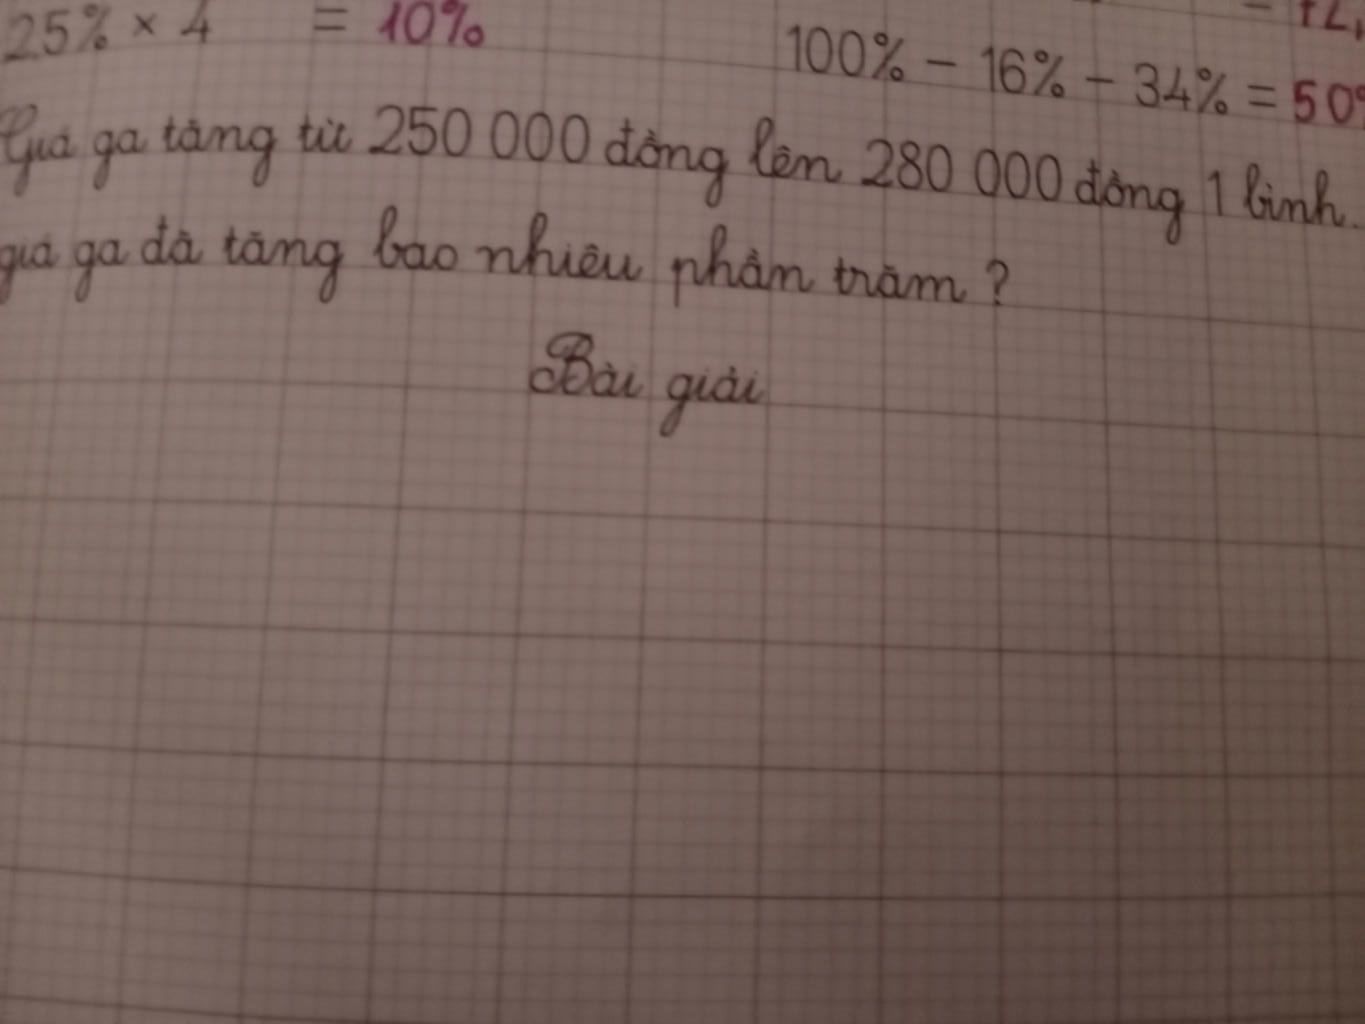 25% × 4 = 10%
100% - 16% - 34% = 50%
Giá ga tăng từ 250 000 đồng lên 280 000 đồng 1 bình.
giá ga đã tăng bao nhiêu phần trăm ?
Bài giải